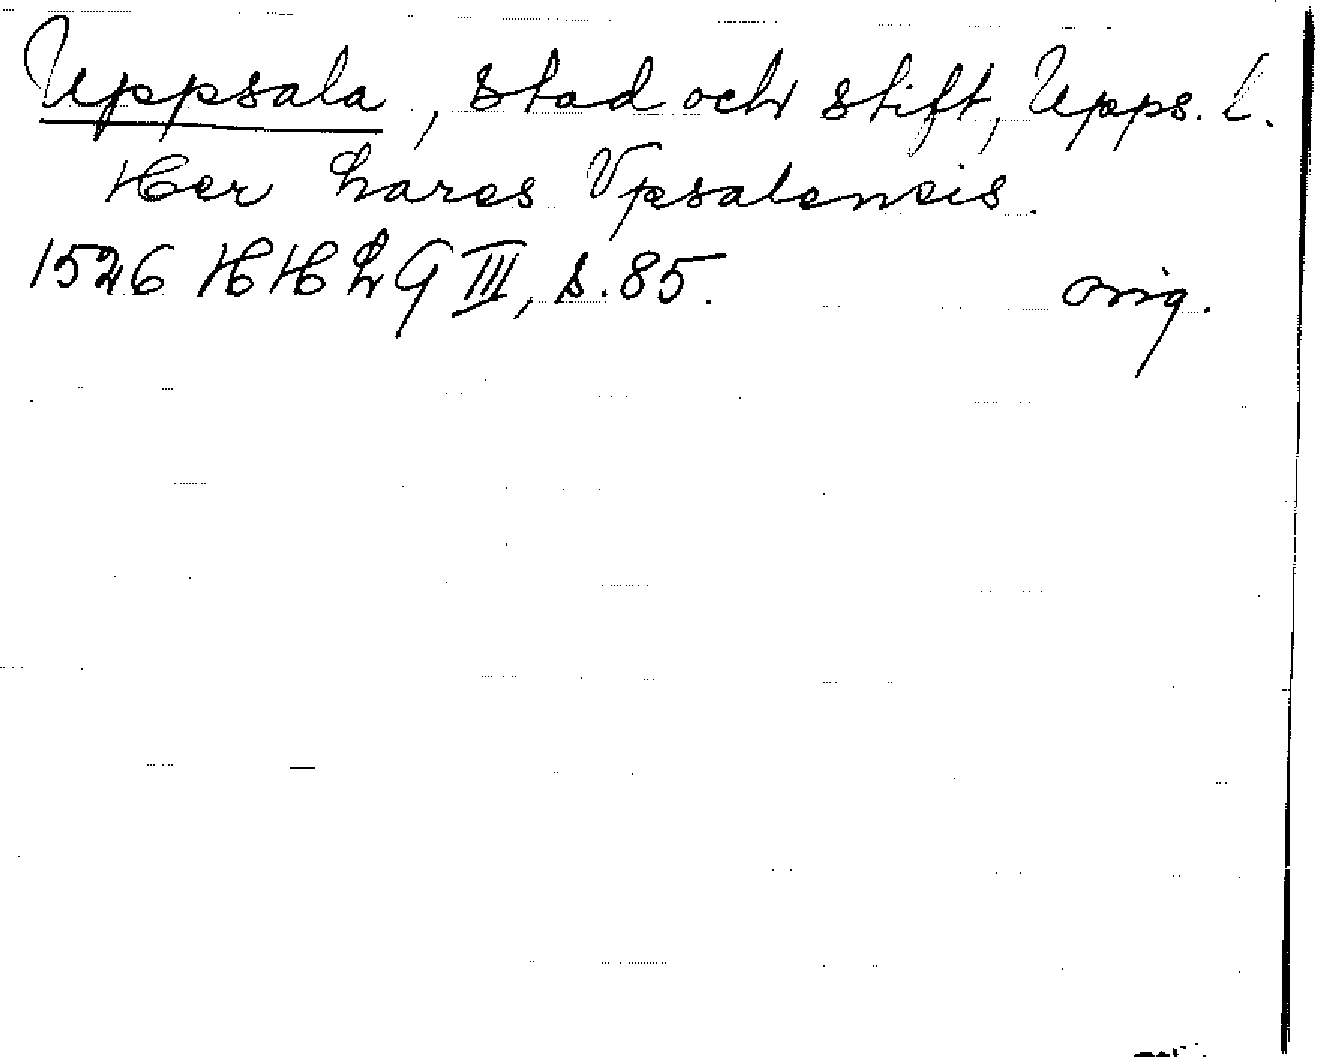 Uppsala, stad och stift, Upps. l.
Her Lares Vpsalensis.
1526 HHLQ III, s. 85. orig.